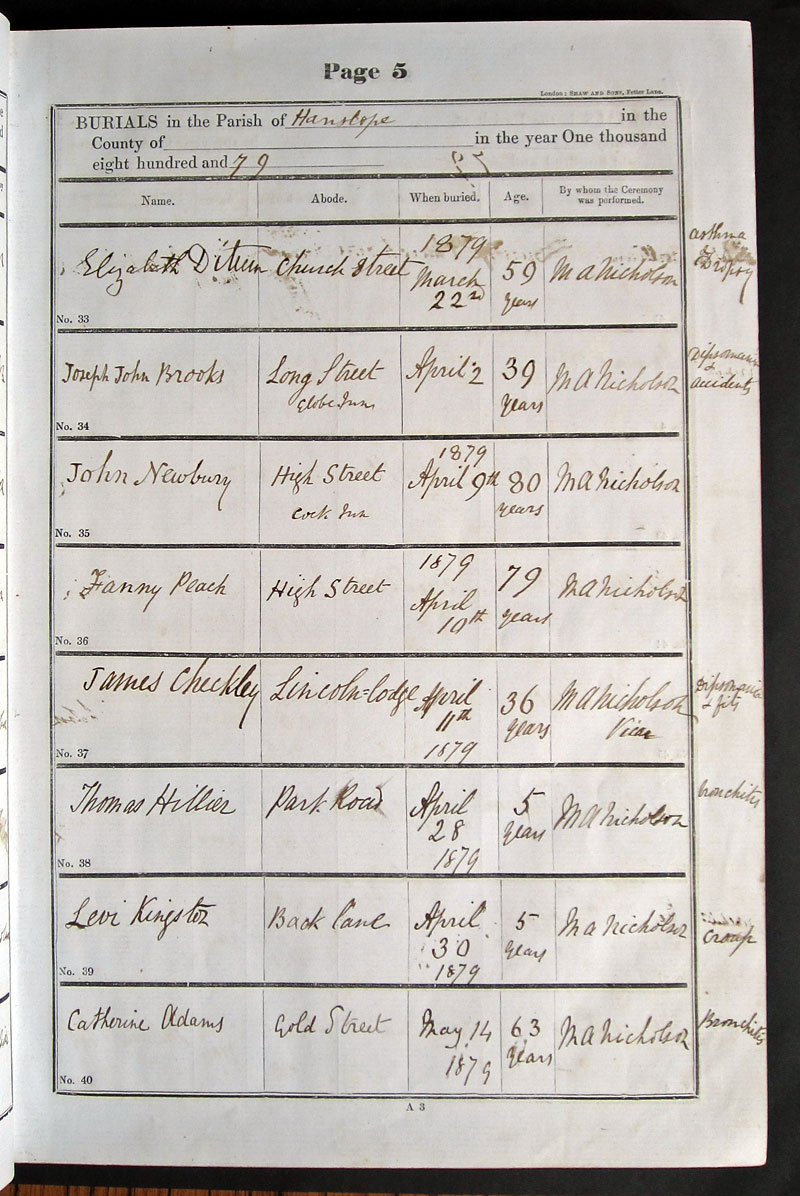 Page 5
London: SHAW AND SONS, Fetter Lane.
BURIALS in the Parish of Hanslope in the
County of in the year One thousand
eight hundred and 79
Name. Abode. When buried. Age. By whom the Ceremony was performed.
1879
Elizabeth Church Street March 22nd 59 years M A Nicholson asthma Dropsy
No. 33
Joseph John Brooks Long Street Globe Inn April 2 39 years M A Nicholson Dipsomania + accidents
No. 34
1879
John Newbury High Street Cock Inn April 9th 80 years M A Nicholson
No. 35
1879
Fanny Peach High Street April 10th 79 years M A Nicholson
No. 36
James Checkley Lincoln=lodge April 11th 1879 36 years M A Nicholson Vicar Dipsomania + fits
No. 37
Thomas Hillier Park Road April 28 1879 5 years M A Nicholson bronchitis
No. 38
Levi Kingston Back lane April 30 1879 5 years M A Nicholson croup
No. 39
Catherine Adams Gold Street May 14 1879 63 years M A Nicholson Bronchitis
No. 40
A 3